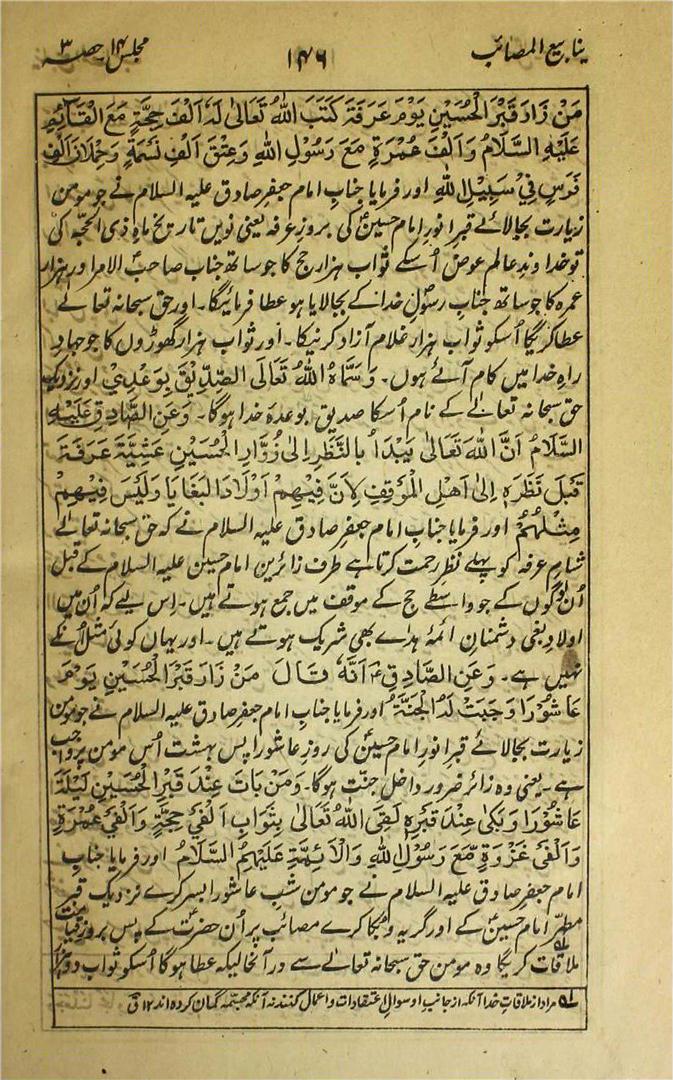 ینابیع المصائب ۱۴۶ مجلس ۱۴ حصہ ۳
مَنْ زَارَ قَبْرَ الْحُسَیْنِ یَوْمَ عَرَفَۃَ کَتَبَ اللّٰہُ تَعَالٰی لَہٗ اَلْفَ حِجَّۃٍ مَعَ الْقَآئِمِ
عَلَیْہِ السَّلَامُ وَاَلْفَ عُمْرَۃٍ مَعَ رَسُوْلِ اللّٰہِ وَعِتْقَ اَلْفِ نَسَمَۃٍ وَحُمْلَانَ اَلْفِ
فَرَسٍ فِیْ سَبِیْلِ اللّٰہِ اور فرمایا جناب امام جعفر صادق علیہ السلام نے جو مومن
زیارت بجالائے قبر انور امام حسینؑ کی بروز عرفہ یعنی نویں تاریخ ماہ ذی الحجہ کی
تو خداوند عالم عوض اُسکے ثواب ہزار حج کا جو ساتھ جناب صاحب الامر اور ہزار
عمرہ کا جو ساتھ جناب رسولِ خدا کے بجالایا ہو عطا فرمائیگا۔ اور حق سبحانہ تعالےٰ
عطا کریگا اُسکو ثواب ہزار غلام آزاد کرنیکا۔ اور ثواب ہزار گھوڑوں کا جو جہادِ
راہِ خدا میں کام آئے ہوں۔ وَسَمَّاہُ اللّٰہُ تَعَالَی الصِّدِّیْقَ بِوَعْدِیْ اور نزدیک
حق سبحانہ تعالےٰ کے نام اُسکا صدیق بوعدہ خدا ہوگا۔ وَعَنِ الصَّادِقِ عَلَیْہِ
السَّلَامُ اَنَّ اللّٰہَ تَعَالٰی یَبْدَأُ بِالنَّظَرِ اِلٰی زُوَّارِ الْحُسَیْنِ عَشِیَّۃَ عَرَفَۃَ
قَبْلَ نَظَرِہٖ اِلٰی اَھْلِ الْمَوْقِفِ لِاَنَّ فِیْھِمْ اَوْلَادَ الْبَغَایَا وَلَیْسَ فِیْھِمْ
مِثْلُھُمْ اور فرمایا جناب امام جعفر صادق علیہ السلام نے کہ حق سبحانہ تعالےٰ
شامِ عرفہ کو پہلے نظرِ رحمت کرتا ہے طرف زائرین امام حسین علیہ السلام کے قبل
اُن لوگوں کے جو واسطے حج کے موقف میں جمع ہوتے ہیں۔ اِس لیے کہ اُن میں
اولاد بغی دشمنان ائمۂ ہدےٰ بھی شریک ہوتے ہیں۔ اور یہاں کوئی مثل اُنکے
نہیں ہے۔ وَعَنِ الصَّادِقِؑ اَنَّہٗ قَالَ مَنْ زَارَ قَبْرَ الْحُسَیْنِ یَوْمَ
عَاشُوْرَا وَجَبَتْ لَہُ الْجَنَّۃُ اور فرمایا جناب امام جعفر صادق علیہ السلام نے جو مومن
زیارت بجالائے قبر انور امام حسینؑ کی روزِ عاشورا پس بہشت اُس مومن پر واجب
ہے۔ یعنی وہ زائر ضرور داخل جنت ہوگا۔ وَمَنْ بَاتَ عِنْدَ قَبْرِ الْحُسَیْنِ لَیْلَۃَ
عَاشُوْرَا وَبَکٰی عِنْدَ قَبْرِہٖ لَقِیَ اللّٰہَ تَعَالٰی بِثَوَابِ اَلْفَیْ حِجَّۃٍ وَاَلْفَیْ عُمْرَۃٍ
وَاَلْفَیْ غَزْوَۃٍ مَّعَ رَسُوْلِ اللّٰہِ وَالْاَئِمَّۃِ عَلَیْھِمُ السَّلَامُ اور فرمایا جناب
امام جعفر صادق علیہ السلام نے جو مومن شبِ عاشورا بسر کرے نزدیک قبر
مطہر امام حسینؑ کے اور گریہ و بکا کرے مصائب پر اُن حضرت کے پس بروز قیامت
ملاقات کریگا وہ مومن حق سبحانہ تعالےٰ سے درآنحالیکہ عطا ہوگا اُسکو ثواب دو ہزار
لہ مراد از ملاقاتِ خدا آنکہ از جانب او سوال اعتقادات و اعمال کنند نہ آنکہ مجسّمہ گمان کردہ اند ۱۲